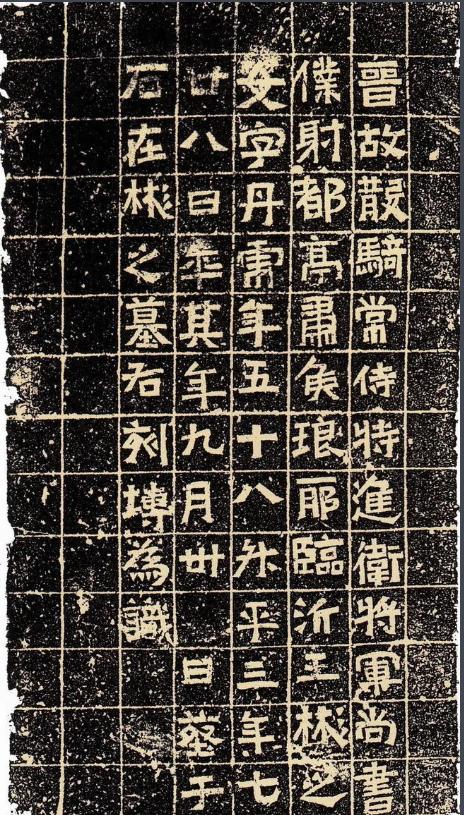 晉故散騎常侍特進衛將軍尚書
僕射都亭肅侯琅耶臨沂王彬之
女字丹虎年五十八升平三年七
廿八日卒其年九月卅日葬于
石在彬之墓右刻塼為識